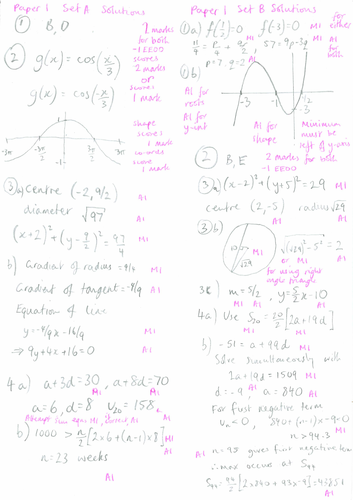 Paper 1 Set A Solutions
① B, D
2 marks for both
-1 EEOO
② g(x) = cos(x/3)
scores 2 marks
or
g(x) = cos(-x/3)
scores 1 mark
Shape scores 1 mark
scores 1 mark
1
-3π
-3π/2
3π/2
3π
-1
③a) Centre (-2, 9/2) A1
diameter √97 A1
(x+2)² + (y-9/2)² = 97/4 M1
b) Gradient of radius = 9/4 M1
Gradient of tangent = -4/9 A1
Equation of line
M1
⇒ 9y+4x+16=0 A1
4a) a+3d=30, a+8d=70 M1
a=6, d=8 u₂₀=158
A1
b) 1000 > n/2[2×6+(n-1)×8] M1
n=23 weeks
A1
Paper 1 Set B Solutions
①a) f(3/2)=0 f(-3)=0 M1 for either
A1 for both
p=7, q=2 A1
①b)
A1 for roots
A1 for y-int
A1 for shape
Minimum must be left of y-axis
-3
-1
1/2
-3
② B, E 2 marks for both
-1 EEOO
③a (x-2)²+(y+5)²=29 M1
centre (2,-5) radius √29
A1 A1
③b)
√29
M1
or M1
for using right angle triangle
3c) m=5/2, y=5/2x-10
M1 A1
4a) Use S₂₀=20/2[2a+19d]
M1 A1
b) -51 = a+99d M1
Solve simultaneously with
2a+19d=1509 M1
d=-9, a=840 A1
For first negative term
uₙ<0, 840+(n-1)×-9<0
M1
n>94.3 M1
A1 n=95 gives first negative term
∴ max occurs at S₉₄
S₉₄=94/2[2×840+93×-9]=
A1